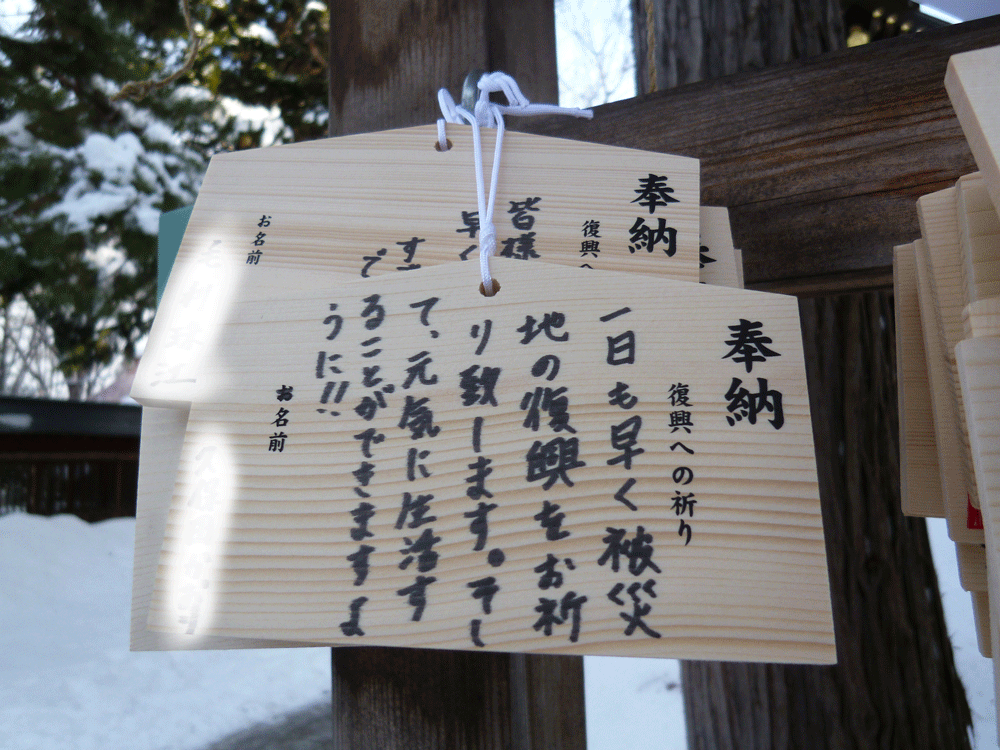 奉納
復興への祈り
一日も早く被災
地の復興をお祈
り致します。そし
て、元気に生活す
ることができますよ
うに!!
お名前
奉納
復興へ
皆様
早く
す
で
お名前